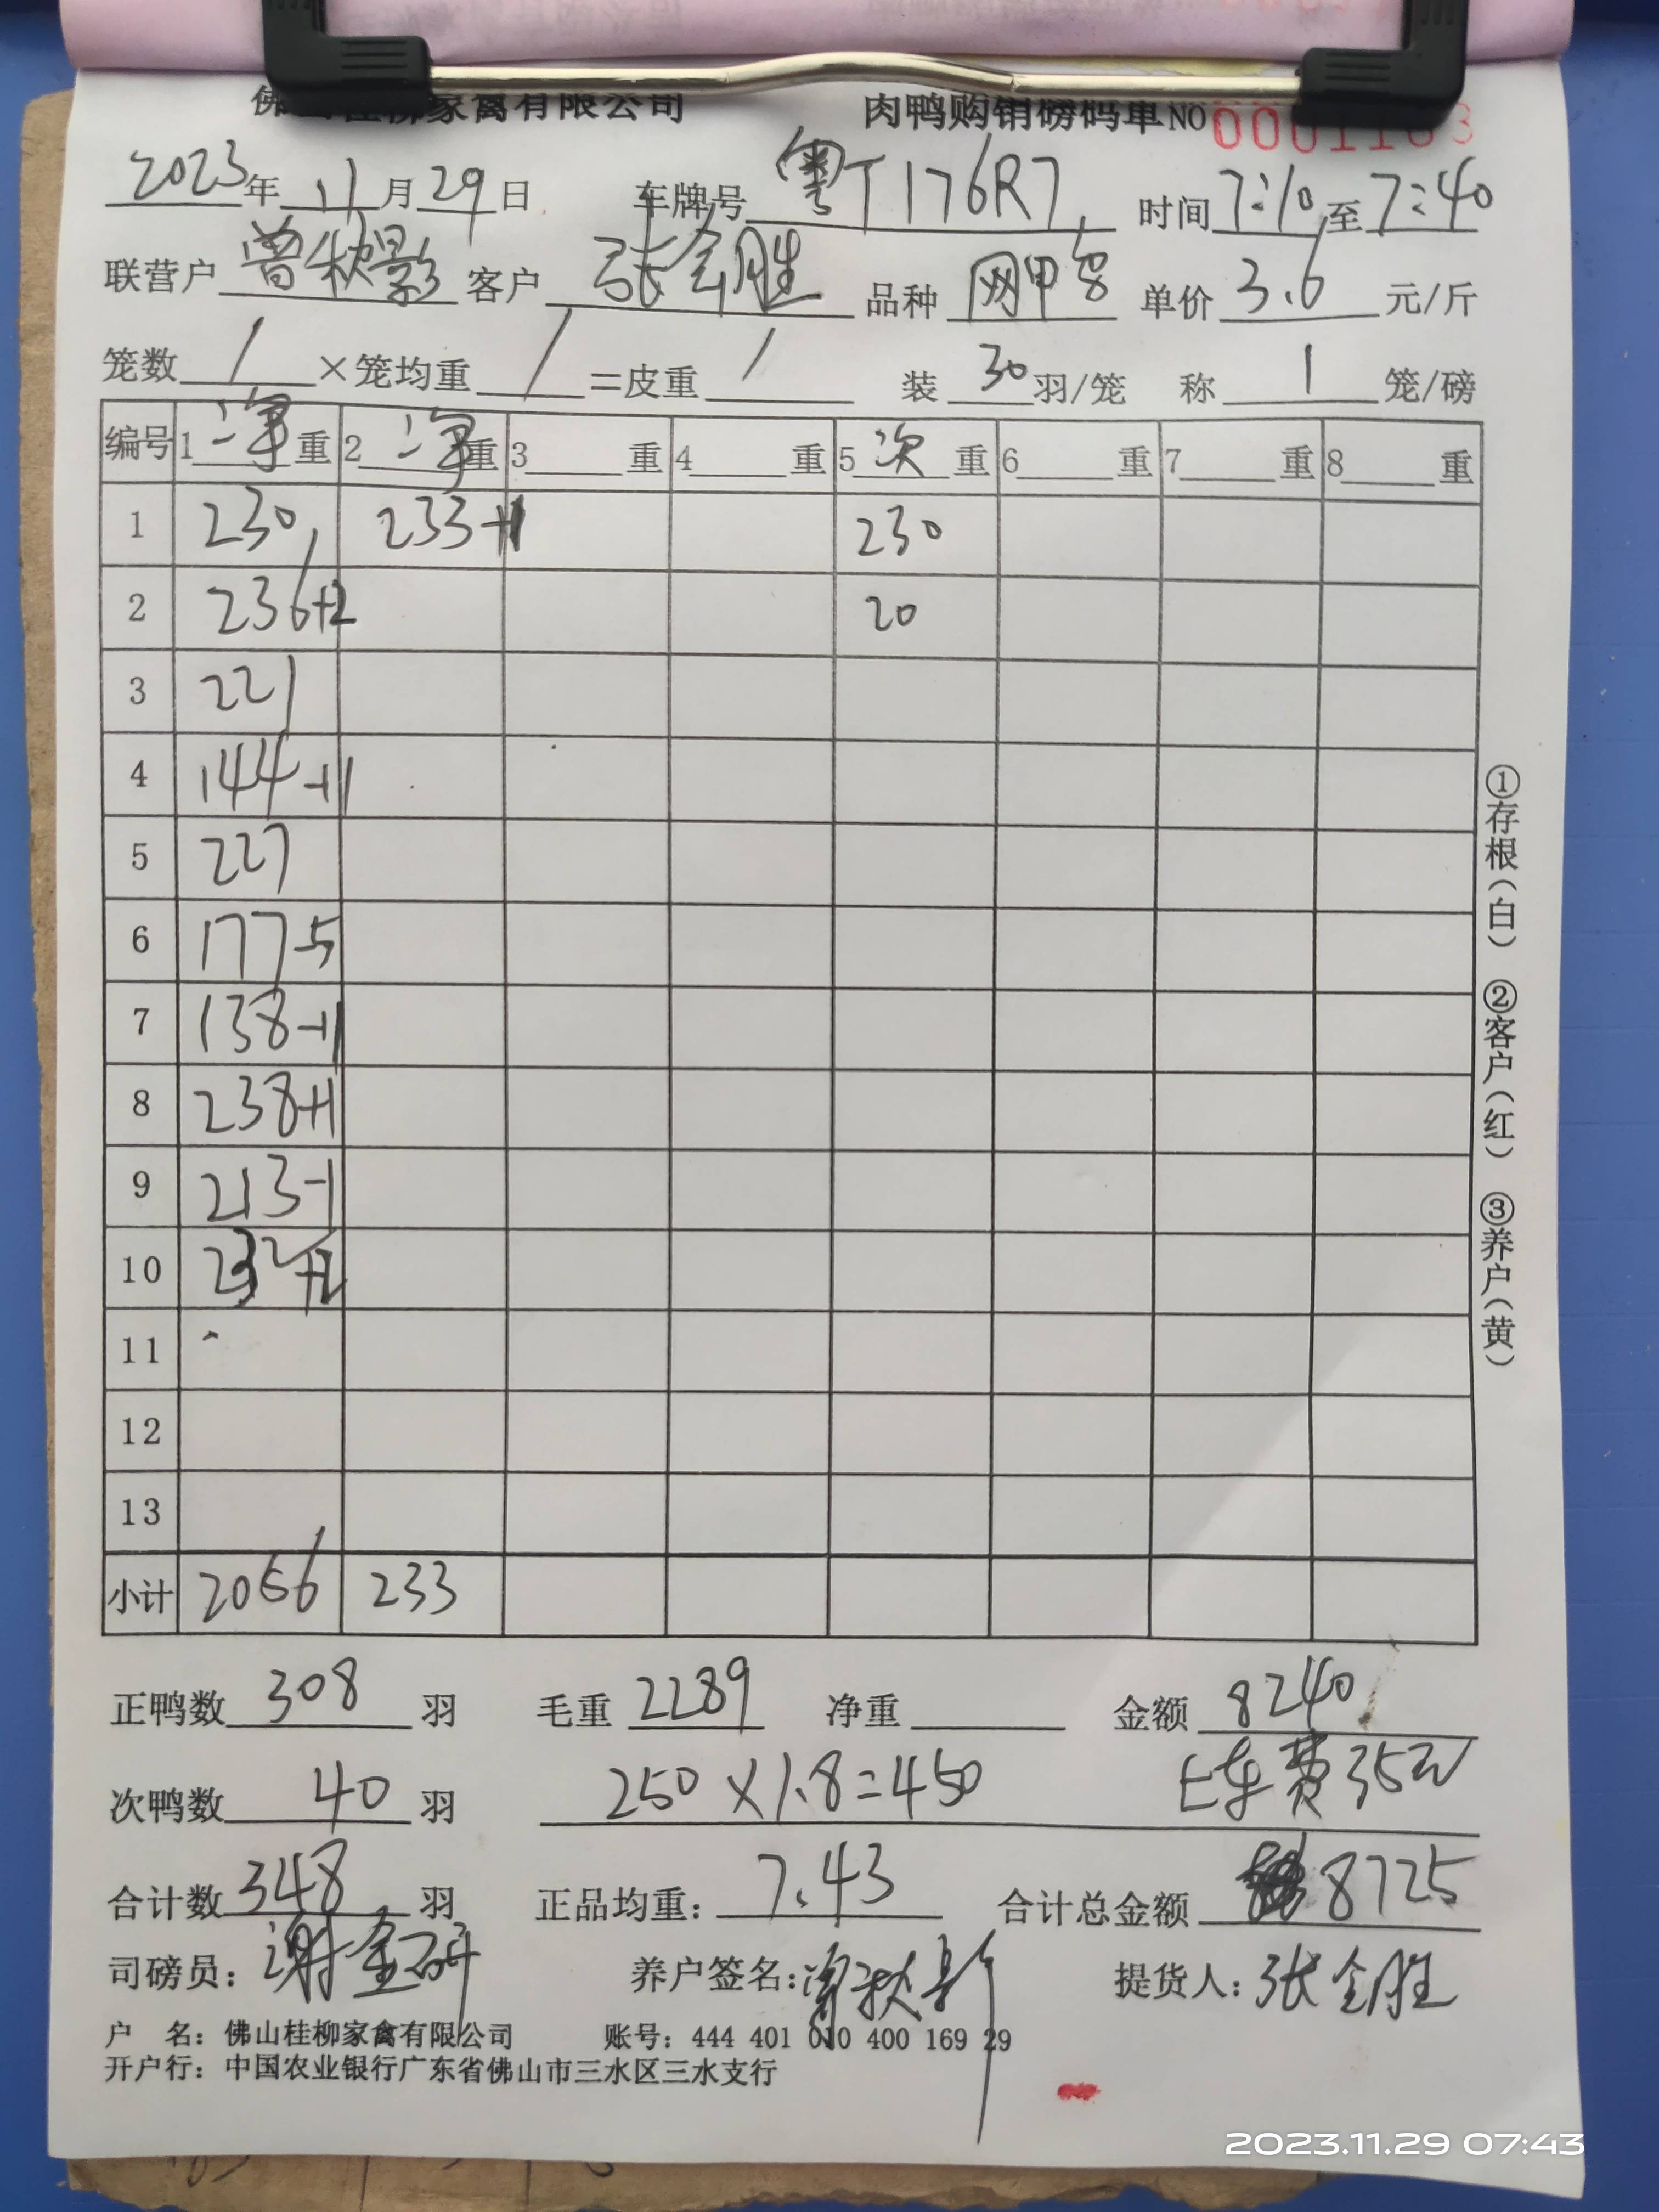 佛山桂柳家禽有限公司 肉鸭购销磅码单 NO 0001163
2023年 11月 29日 车牌号 粤T176R7 时间 7:10 至 7:40
联营户 曾秋影 客户 张全胜 品种 网甲 单价 3.6 元/斤
笼数 / ×笼均重 / =皮重 / 装 30 羽/笼 称 1 笼/磅
编号 1 净 重 2 净 重 3 重 4 重 5 次 重 6 重 7 重 8 重
1 230 233+1 230
2 236+2 20
3 221
4 144-11
5 227
6 177-5
7 138-11
8 238+1
9 213-1
10 232+2
11
12
13
小计 2056 233
正鸭数 308 羽 毛重 2289 净重 金额 8240
次鸭数 40 羽 250×1.8=450 上车费35元
合计数 348 羽 正品均重: 7.43 合计总金额 8725
司磅员: 谢金研 养户签名: 曾秋影 提货人: 张全胜
户 名: 佛山桂柳家禽有限公司 账号: 444 401 010 400 169 29
开户行: 中国农业银行广东省佛山市三水区三水支行
①存根(白) ②客户(红) ③养户(黄)
2023.11.29 07:43